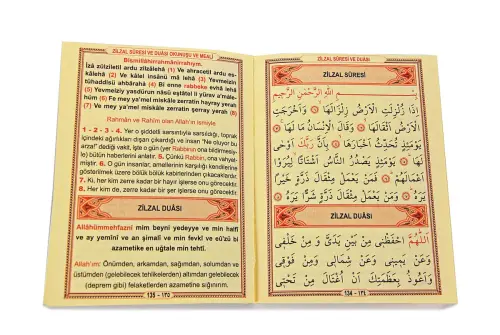 ZİLZAL SÛRESİ VE DUÂSI OKUNUŞU VE MEÂLİ
Bismillâhirrahmânirrahıym.
İzâ zülziletil ardu zilzâlehâ (1) Ve ahracetil ardu es-
kâlehâ (2) Ve kâlel insânü mâ lehâ (3) Yevmeizin
tühaddisü ahbârahâ (4) Bi enne rabbeke evhâ lehâ
(5) Yevmeiziy yasdürun nâsü eştâtel li yürav a'mâle-
hüm (6) Fe mey ya'mel miskâle zerratin hayray yerah
(7) Ve mey ya'mel miskâle zerratin şerray yerah (8)
Rahmân ve Rahîm olan Allah'ın ismiyle
1 - 2 - 3 - 4. Yer o şiddetli sarsıntıyla sarsıldığı, toprak
içindeki ağırlıkları dışarı çıkardığı ve insan "Ne oluyor bu
arza!" dediği vakit, işte o gün (yer Rabbinin ona bildirmesiy-
le) bütün haberlerini anlatır. 5. Çünkü Rabbin, ona vahyet-
miştir. 6. O gün insanlar, amellerinin karşılığı kendilerine
gösterilmek üzere bölük bölük kabirlerinden çıkacaklardır.
7. Ki, her kim zerre kadar bir hayır işlerse onu görecektir.
8. Her kim de, zerre kadar bir şer işlerse onu görecektir.
ZİLZAL DUÂSI
Allâhümmehfaznî mim beyni yedeyye ve min halfî
ve ay yemînî ve an şimâlî ve min fevkî ve eûzü bi
azametike en uğtale min tehtî.
Allah'ım: Önümden, arkamdan, sağımdan, solumdan ve
üstümden (gelebilecek tehlikelerden) altımdan gelebilecek
(deprem gibi) felaketlerden azametine sığınırım.
135 - ١٣٥
ZİLZAL SÛRESİ VE DUÂSI
ZİLZAL SÛRESİ
بِسْمِ اللّٰهِ الرَّحْمٰنِ الرَّحِيمِ
اِذَا زُلْزِلَتِ الْاَرْضُ زِلْزَالَهَا ۝ وَاَخْرَجَتِ
الْاَرْضُ اَثْقَالَهَا ۝ وَقَالَ الْاِنْسَانُ مَا لَهَا ۝
يَوْمَئِذٍ تُحَدِّثُ اَخْبَارَهَا ۝ بِاَنَّ رَبَّكَ اَوْحٰى
لَهَا ۝ يَوْمَئِذٍ يَصْدُرُ النَّاسُ اَشْتَاتًا لِيُرَوْا
اَعْمَالَهُمْ ۝ فَمَنْ يَعْمَلْ مِثْقَالَ ذَرَّةٍ خَيْرًا
يَرَهُ ۝ وَمَنْ يَعْمَلْ مِثْقَالَ ذَرَّةٍ شَرًّا يَرَهُ ۝
ZİLZAL DUÂSI
اَللّٰهُمَّ احْفَظْنِى مِنْ بَيْنِ يَدَىَّ وَ مِنْ خَلْفِى
وَ عَنْ يَمِينِى وَ عَنْ شِمَالِى وَ مِنْ فَوْقِى
وَ اَعُوذُ بِعَظَمَتِكَ اَنْ اُغْتَالَ مِنْ تَحْتِى
134 - ١٣٤